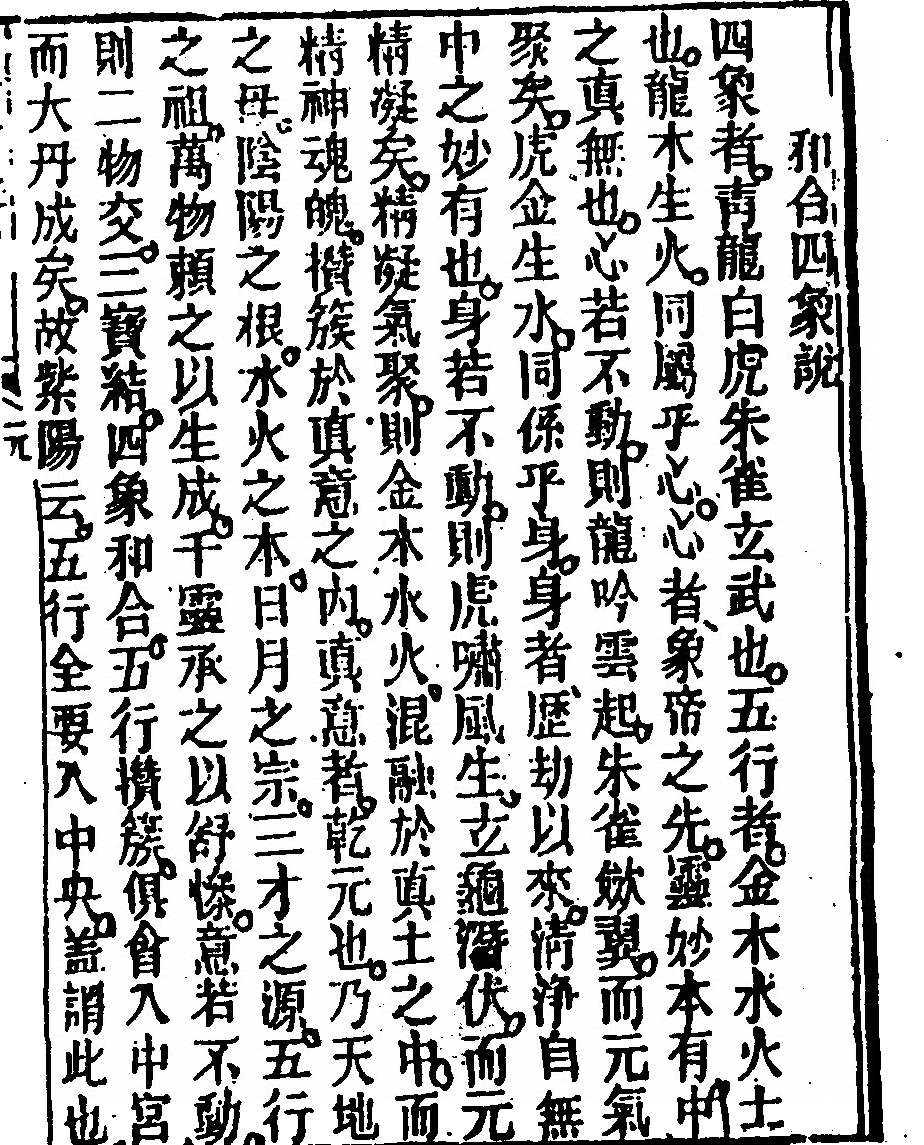 和合四象說
四象者青龍白虎朱雀玄武也五行者金木水火土
也龍木生火同屬乎心心者象帝之先靈妙本有中
之真無也心若不動則龍吟雲起朱雀斂翼而元氣
聚矣虎金生水同係乎身身者歷劫以來清淨自無
中之妙有也身若不動則虎嘯風生玄龜潛伏而元
精凝矣精凝氣聚則金木水火混融於真土之中而
精神魂魄攢簇於真意之內真意者乾元也乃天地
之母陰陽之根水火之本日月之宗三才之源五行
之祖萬物賴之以生成千靈承之以舒慘意若不動
則二物交三寶結四象和合五行攢簇俱會入中宮
而大丹成矣故紫陽云五行全要入中央蓋謂此也